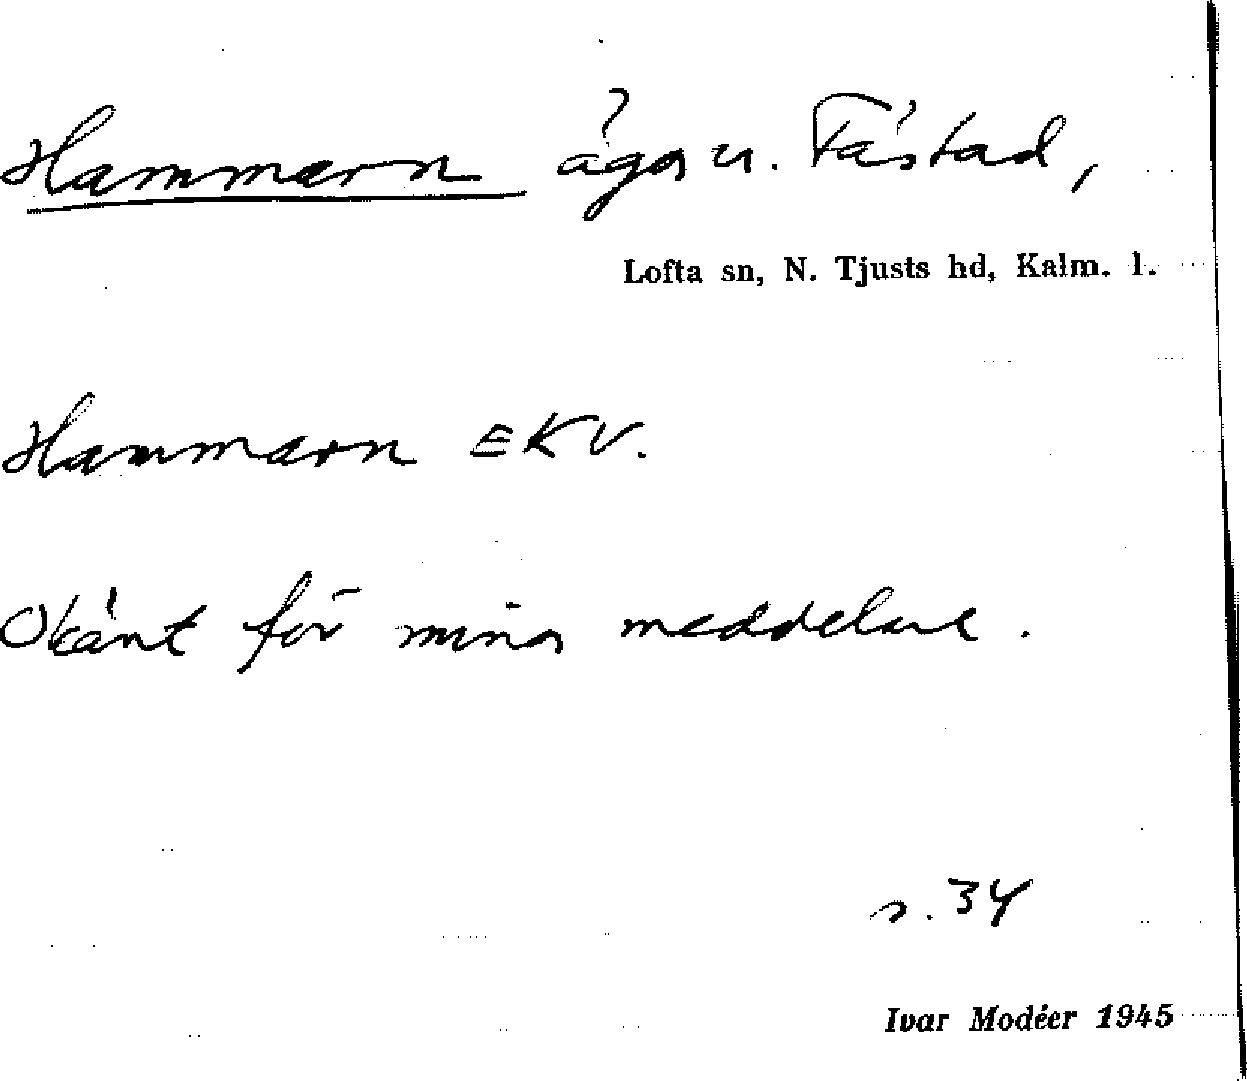 Hammarn ägor u. Fästad,
Lofta sn, N. Tjusts hd, Kalm. l.
Hammarn EKV.
Okänt för mina meddelare.
s. 34
Ivar Modéer 1945